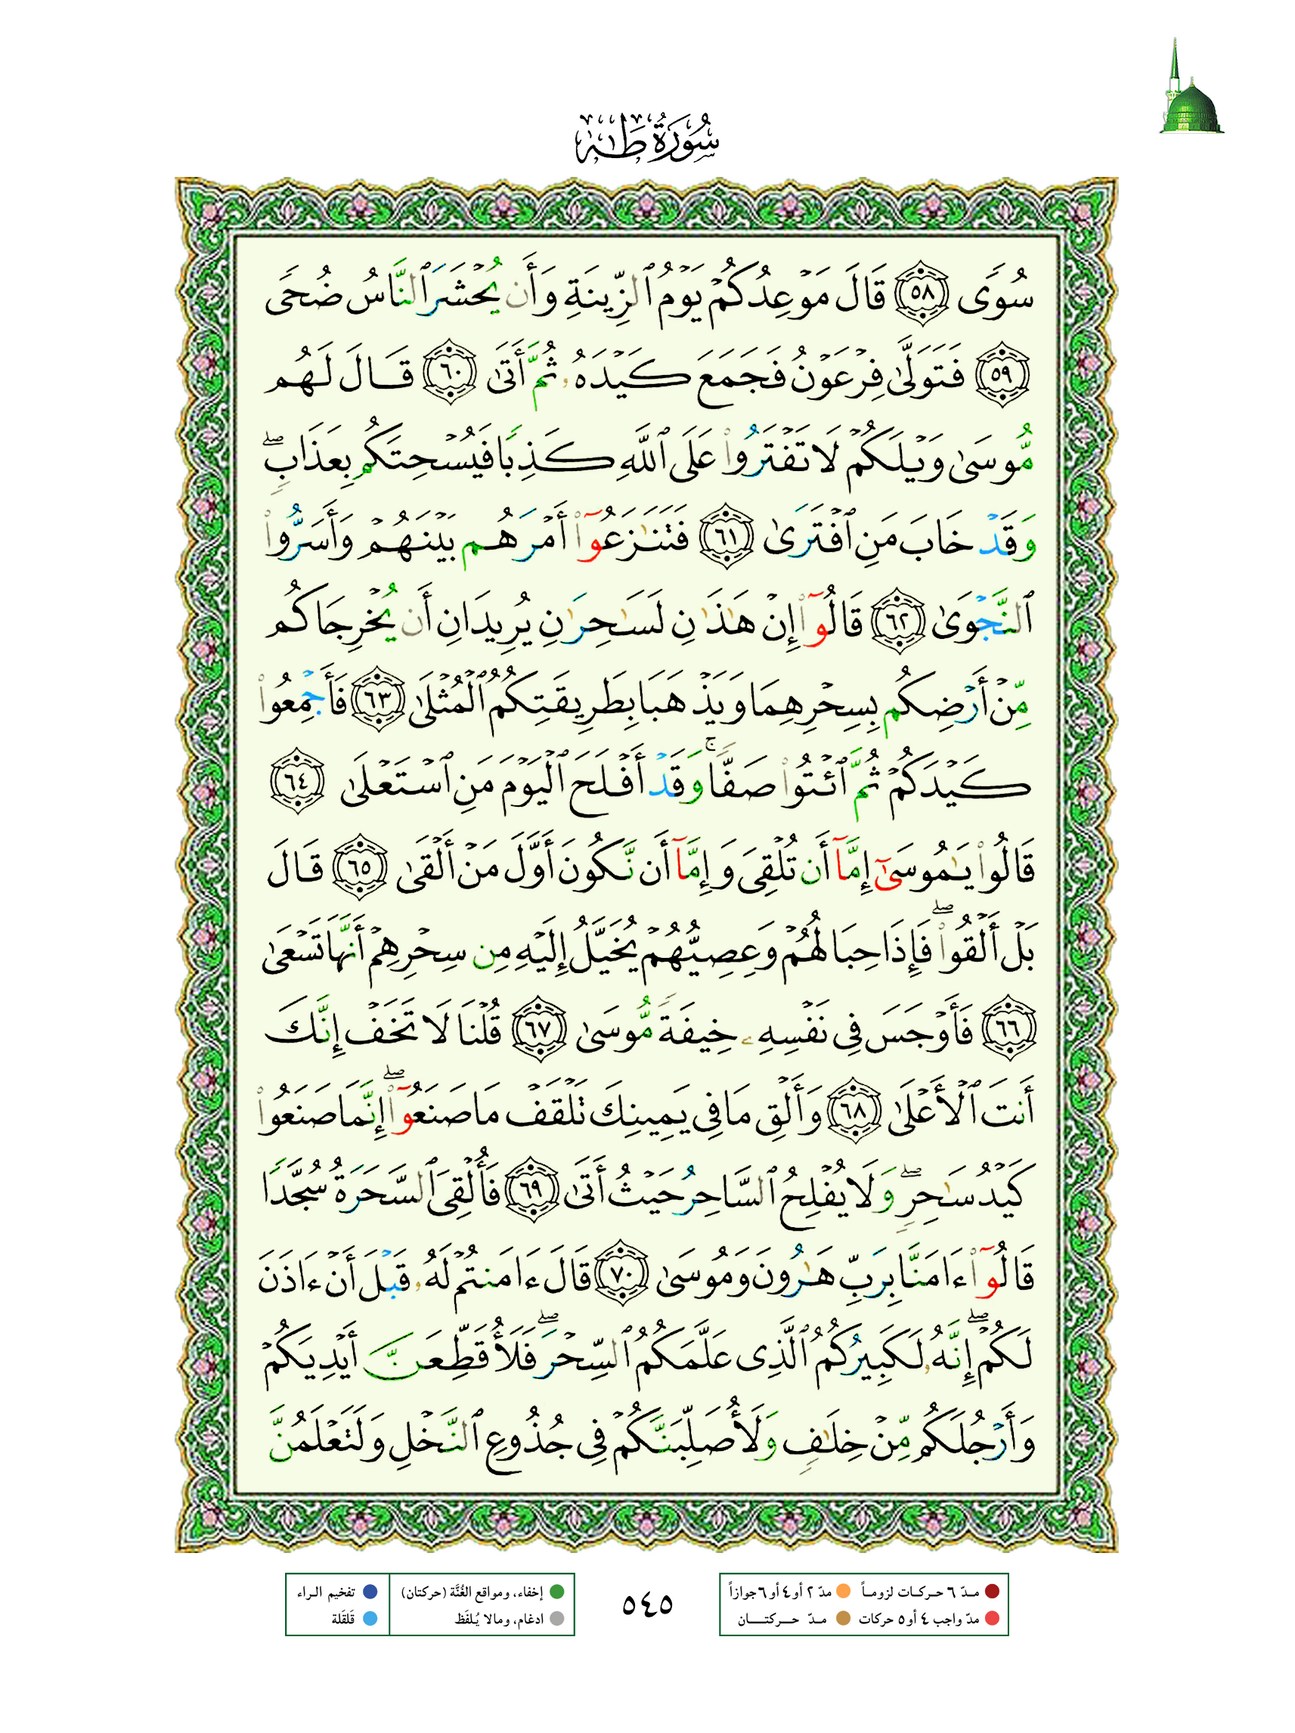 سُورَةُ طَهٰ
سُوًى ٥٨ قَالَ مَوْعِدُكُمْ يَوْمُ ٱلزِّينَةِ وَأَن يُحْشَرَ ٱلنَّاسُ ضُحًى
٥٩ فَتَوَلَّىٰ فِرْعَوْنُ فَجَمَعَ كَيْدَهُۥ ثُمَّ أَتَىٰ ٦٠ قَالَ لَهُم
مُّوسَىٰ وَيْلَكُمْ لَا تَفْتَرُوا۟ عَلَى ٱللَّهِ كَذِبًا فَيُسْحِتَكُم بِعَذَابٍ ۖ
وَقَدْ خَابَ مَنِ ٱفْتَرَىٰ ٦١ فَتَنَٰزَعُوٓا۟ أَمْرَهُم بَيْنَهُمْ وَأَسَرُّوا۟
ٱلنَّجْوَىٰ ٦٢ قَالُوٓا۟ إِنْ هَٰذَٰنِ لَسَٰحِرَٰنِ يُرِيدَانِ أَن يُخْرِجَاكُم
مِّنْ أَرْضِكُم بِسِحْرِهِمَا وَيَذْهَبَا بِطَرِيقَتِكُمُ ٱلْمُثْلَىٰ ٦٣ فَأَجْمِعُوا۟
كَيْدَكُمْ ثُمَّ ٱئْتُوا۟ صَفًّا ۚ وَقَدْ أَفْلَحَ ٱلْيَوْمَ مَنِ ٱسْتَعْلَىٰ ٦٤
قَالُوا۟ يَٰمُوسَىٰٓ إِمَّآ أَن تُلْقِىَ وَإِمَّآ أَن نَّكُونَ أَوَّلَ مَنْ أَلْقَىٰ ٦٥ قَالَ
بَلْ أَلْقُوا۟ ۖ فَإِذَا حِبَالُهُمْ وَعِصِيُّهُمْ يُخَيَّلُ إِلَيْهِ مِن سِحْرِهِمْ أَنَّهَا تَسْعَىٰ
٦٦ فَأَوْجَسَ فِى نَفْسِهِۦ خِيفَةً مُّوسَىٰ ٦٧ قُلْنَا لَا تَخَفْ إِنَّكَ
أَنتَ ٱلْأَعْلَىٰ ٦٨ وَأَلْقِ مَا فِى يَمِينِكَ تَلْقَفْ مَا صَنَعُوٓا۟ ۖ إِنَّمَا صَنَعُوا۟
كَيْدُ سَٰحِرٍ ۖ وَلَا يُفْلِحُ ٱلسَّاحِرُ حَيْثُ أَتَىٰ ٦٩ فَأُلْقِىَ ٱلسَّحَرَةُ سُجَّدًا
قَالُوٓا۟ ءَامَنَّا بِرَبِّ هَٰرُونَ وَمُوسَىٰ ٧٠ قَالَ ءَامَنتُمْ لَهُۥ قَبْلَ أَنْ ءَاذَنَ
لَكُمْ ۖ إِنَّهُۥ لَكَبِيرُكُمُ ٱلَّذِى عَلَّمَكُمُ ٱلسِّحْرَ ۖ فَلَأُقَطِّعَنَّ أَيْدِيَكُمْ
وَأَرْجُلَكُم مِّنْ خِلَٰفٍ وَلَأُصَلِّبَنَّكُمْ فِى جُذُوعِ ٱلنَّخْلِ وَلَتَعْلَمُنَّ
مدّ ٦ حركـات لزومـاً مدّ ٢ أو ٤ أو ٦ جوازاً
مدّ واجب ٤ أو ٥ حركات مدّ حركتان
٥٤٥
إخفاء، ومواقع الغُنَّة (حركتان) تفخيم الراء
ادغام، ومالا يُلفَظ قَلقَلة